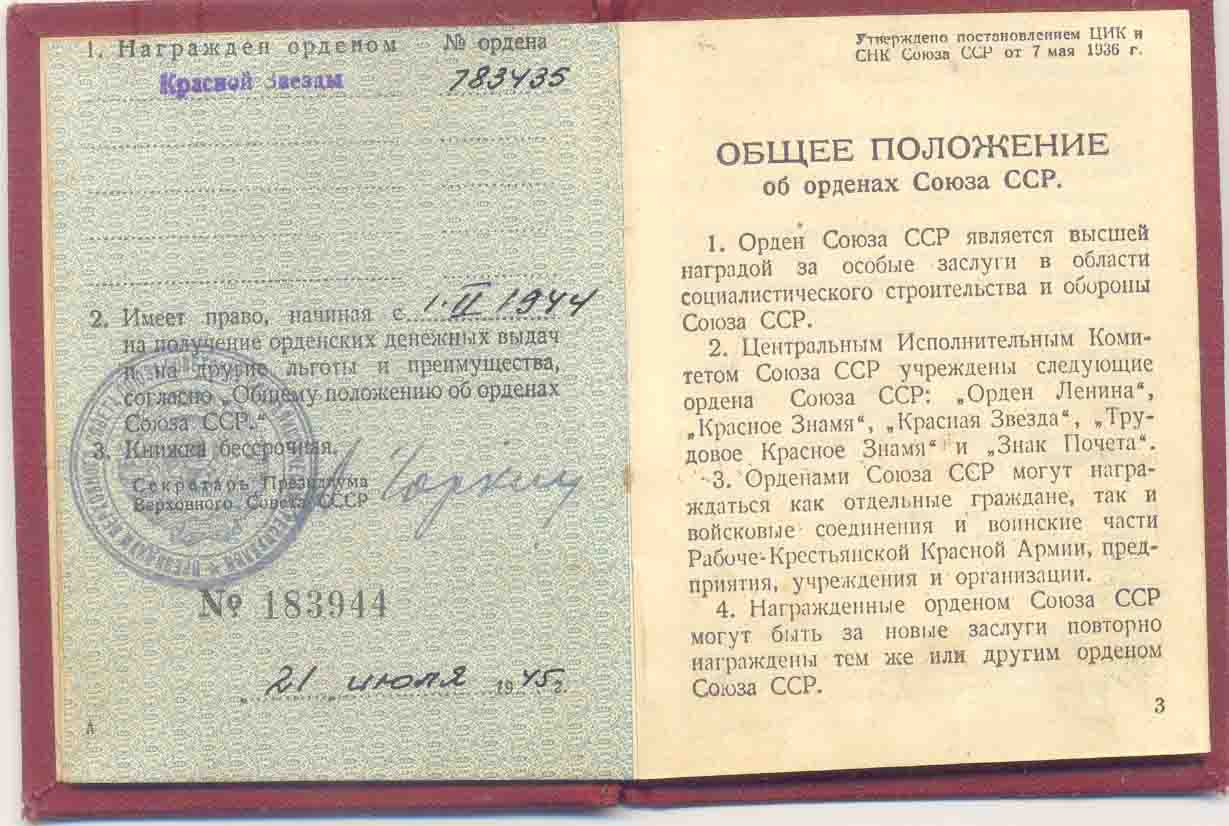 1. Награжден орденом № ордена
Красной Звезды 783435
2. Имеет право, начиная с 1·II 1944
на получение орденских денежных выдач
и на другие льготы и преимущества,
согласно „Общему положению об орденах
Союза ССР.“
3. Книжка бессрочная.
Секретарь Президиума
Верховного Совета СССР
Горкин
№ 183944
21 июля 1945 г.
А
Утверждено постановлением ЦИК и
СНК Союза ССР от 7 мая 1936 г.
ОБЩЕЕ ПОЛОЖЕНИЕ
об орденах Союза ССР.
1. Орден Союза ССР является высшей
наградой за особые заслуги в области
социалистического строительства и обороны
Союза ССР.
2. Центральным Исполнительным Коми-
тетом Союза ССР учреждены следующие
ордена Союза ССР: „Орден Ленина“,
„Красное Знамя“, „Красная Звезда“, „Тру-
довое Красное Знамя“ и „Знак Почета“.
3. Орденами Союза ССР могут награ-
ждаться как отдельные граждане, так и
войсковые соединения и воинские части
Рабоче-Крестьянской Красной Армии, пред-
приятия, учреждения и организации.
4. Награжденные орденом Союза ССР
могут быть за новые заслуги повторно
награждены тем же или другим орденом
Союза ССР.
3